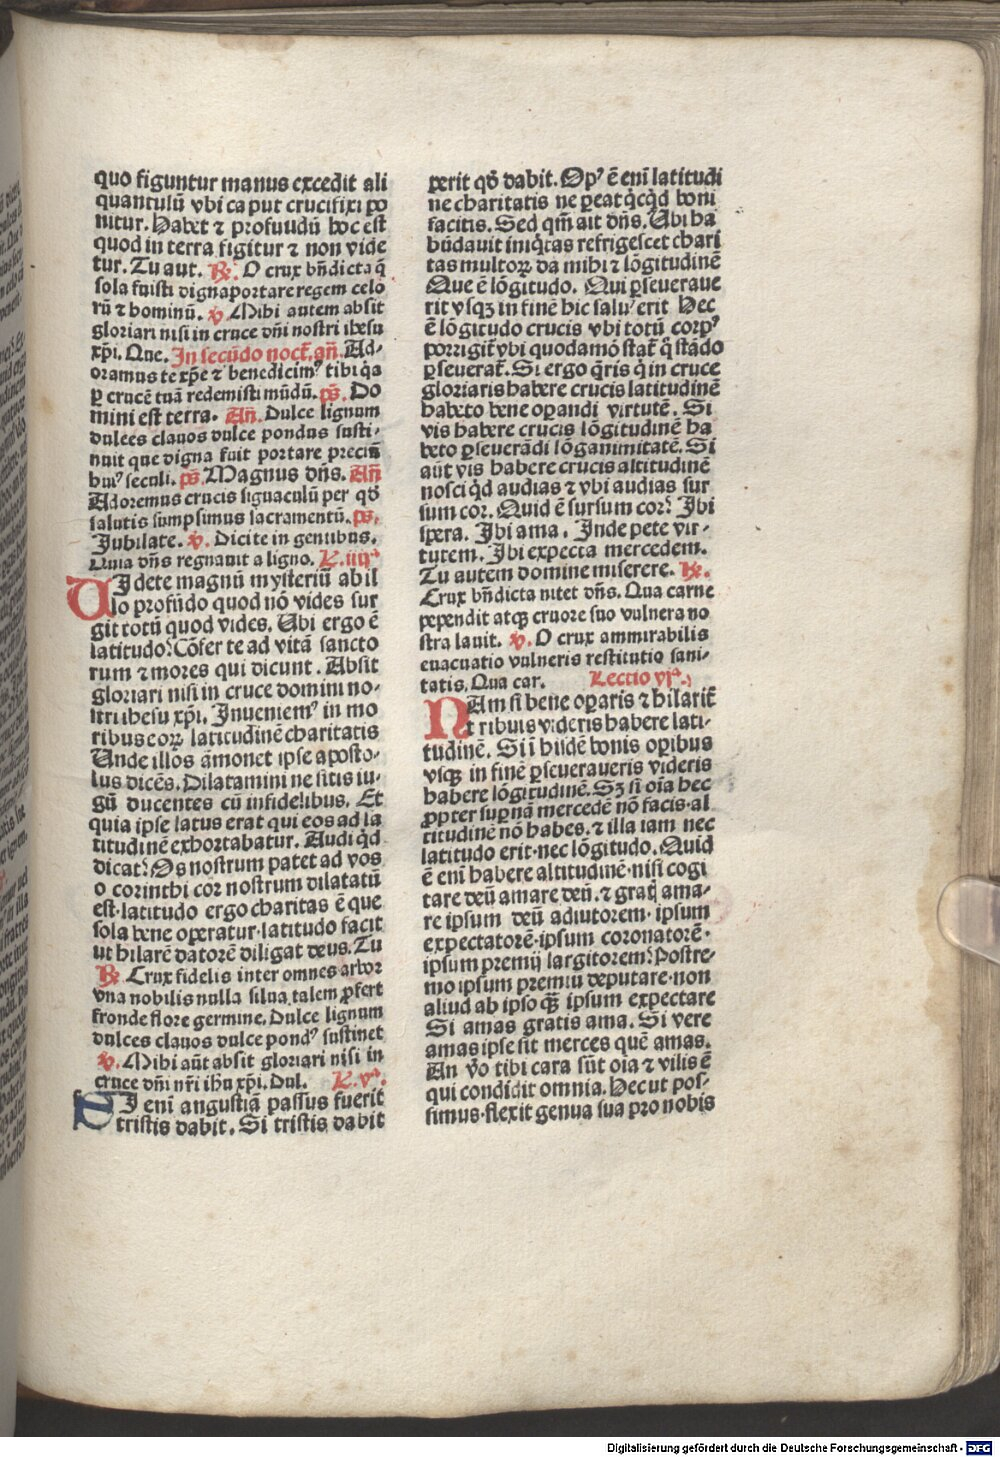 quo figuntur manus excedit ali
quantulū vbi caput crucifixi po
nitur. Habet ⁊ profundū hoc est
quod in terra figitur ⁊ non vide
tur. Tu aut. ℞. O crux bn̄dicta q̄
sola fuisti digna portare regem celo
rū ⁊ dominū. ℣. Mihi autem absit
gloriari nisi in cruce dn̄i nostri ihesu
xp̄i. Que. In secūdo noct̄. an̄. Ad-
oramus te xp̄e ⁊ benedicimꝰ tibi q̇a
ꝑ crucē tuā redemisti mūdū. ps̄. Do
mini est terra. An̄. Dulce lignum
dulces clauos dulce pondus susti-
nuit que digna fuit portare preciū
huiꝰ seculi. ps̄. Magnus dn̄s. An̄
Adoremus crucis signaculū per qð
salutis sumpsimus sacramentū. ps̄.
Jubilate. ℣. Dicite in gentibus.
Quia dn̄s regnauit a ligno. L. iiijᵃ
UJdete magnū mysteriū ab il
lo profūdo quod nō vides sur
git totū quod vides. Ubi ergo ē
latitudo? Cōfer te ad vitā sancto
rum ⁊ mores qui dicunt. Absit
gloriari nisi in cruce domini no-
stri ihesu xp̄i. Jnueniemꝰ in mo
ribus eoꝝ latitudinē charitatis
Unde illos āmonet ipse aposto-
lus dicēs. Dilatamini ne sitis iu-
gū ducentes cū infidelibus. Et
quia ipse latus erat qui eos ad la
titudinē exhortabatur. Audi q̇d
dicat? Os nostrum patet ad vos
o corinthi cor nostrum dilatatū
est·latitudo ergo charitas ē que
sola bene operatur·latitudo facit
ut hilarē datorē diligat deus. Tu
℞. Crux fidelis inter omnes arbor
vna nobilis nulla silua talem ꝓfert
fronde flore germine. Dulce lignum
dulces clauos dulce pondꝰ sustinet
℣. Mihi aūt absit gloriari nisi in
cruce dn̄i nr̄i ihu xp̄i. Dul. L. vᵃ.
SJ enī angustiā passus fuerit
tristis dabit. Si tristis dabit
perit qð dabit. Opꝰ ē enī latitudi
ne charitatis ne ꝑeat q̇cq̇d boni
facitis. Sed qm̄ ait dn̄s. Ubi ha
būdauit iniq̇tas refrigescet chari
tas multoꝝ da mihi ⁊ lōgitudinē
Que ē lōgitudo. Qui ꝑseueraue
rit vsqꝫ in finē hic saluꝰ erit Hec
ē lōgitudo crucis vbi totū corpꝰ
porrigit̄ vbi quodāmō stat̄ q̄ stādo
ꝑseuerat̄. Si ergo q̄ris q̇ in cruce
gloriaris habere crucis latitudinē
habeto bene oꝑandi virtutē. Si
vis habere crucis lōgitudinē ha
beto ꝑseuerādi lōganimitatē. Si
aūt vis habere crucis altitudinē
nosci q̇d audias ⁊ vbi audias sur
sum cor. Quid ē sursum cor? Jbi
spera. Jbi ama. Jnde pete vir-
tutem. Jbi expecta mercedem.
Tu autem domine miserere. ℞.
Crux bn̄dicta nitet dn̄s. Qua carne
pependit atqꝫ cruore suo vulnera no
stra lauit. ℣. O crux ammirabilis
euacuatio vulneris restitutio sani-
tatis. Qua car. Lectio vjᵃ.
NAm si bene oꝑaris ⁊ hilarit̄
tribuis videris habere lati-
tudinē. Si ī hisdē bonis oꝑibus
vsqꝫ in finē ꝑseueraueris videris
habere lōgitudinē. Sꝫ si oīa hec
ꝓpter suꝑnā mercedē nō facis·al
titudinē nō habes. ⁊ illa iam nec
latitudo erit·nec lōgitudo. Quid
ē enī habere altitudinē·nisi cogi
tare deū amare deū. ⁊ gratꝭ ama-
re ipsum deū adiutorem· ipsum
expectatorē·ipsum coronatorē·
ipsum premij largitorem? Postre-
mo ipsum premiū deputare·non
aliud ab ipso q̄ꝫ ipsum expectare
Si amas gratis ama. Si vere
amas ipse sit merces quē amas.
An v̊o tibi cara sūt oīa ⁊ vilis ē
qui condidit omnia. Hec ut pos-
simus·flexit genua sua pro nobis
Digitalisierung gefördert durch die Deutsche Forschungsgemeinschaft - DFG